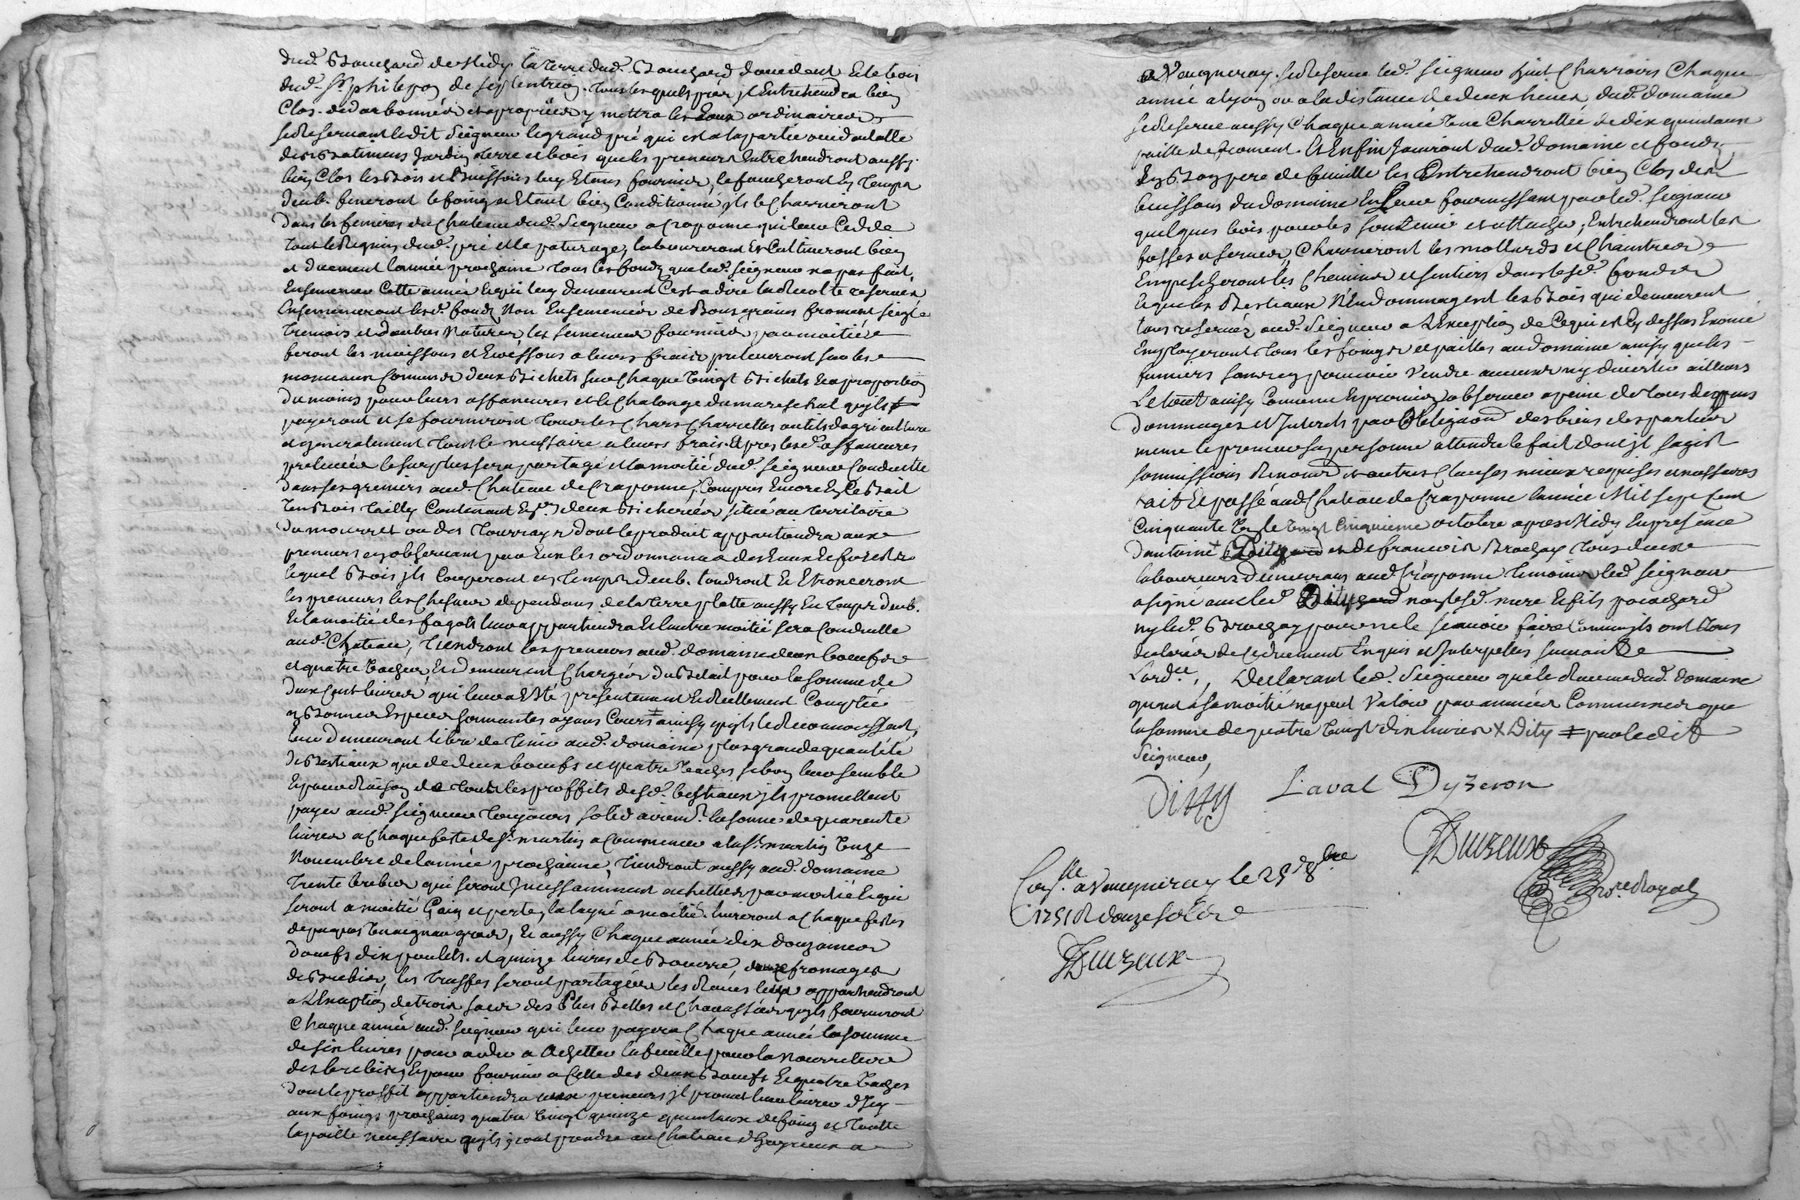 dud. Bouchard de Midy la terre dud. Bouchard doccident Et le bois
dud. Sr. philipon de septentrion. Tous lesquels prez jl Entretiendra bien
Clos. y mettra les Eaux ordinaires
se Reservant ledit Seigneur le grand pré qui est a la partie occidentalle
des Batimens Jardin terre et bois que les preneurs Entretiendront aussy
bien Clos les Bois et Buissons leur Etans fournies, le faucheront En Temps
deub. feneront le foing et Etant bien Conditionné jls le Charrieront
dans les fenieres du Chateau dud. Seigneur a Craponne qui leur Cedde
tout le Reguin dud. pré et le paturage, laboureront Et Cultiveront bien
et duement l'année prochaine tous les fonds que led. Seigneur na pas fait
Ensemencer Cette année Et qui luy demeurent Cest a dire la Recolte reservée
Ensemenceront lesd. fonds Non Ensemencés de Bons grains froment seigle
Tremois et d'autres Natures les semences fournies par moitié
feront les moissons et Ewessons a leurs fraix preleveront sur les
monceaux Communs deux Bichets sur Chaque Vingt Bichets Et a proportion
du moins pour leurs affanures et le Chalonge du mareschal qu'jls
payeront et se fourniront Tous les Chars Charrettes outils dagriculture
et generalement Tout le necessaire a leurs frais Et apres lesd. affanures
prelevées le surplus sera partagé et la moitié dud. Seigneur Conduitte
dans ses greniers aud. Chateau de Craponne, Compris Encore En Ce Bail
Un Bois Tailly Contenant En. deux Bicherées situé au Territoire
du mourret ou des Tourrayes dont le produit appartiendra aux
preneurs en observant par Eux les ordonnances des Eaux et forests
lequel Bois jls Couperont en Temps deub. tondront Et Etronceront
les preneurs les Chesnes dependans de la terre platte aussy En Temps deub.
Et la moitié des fagots leur appartiendra Et l'autre moitié sera Conduitte
aud. Chateau, Tiendront les preneurs aud. domaine deux boeufs
et quatre Vaches, Et demeurent Chargés du Betail pour la somme de
deux Cent livres qui leur a Eté presentement Et Reellement Comptée
en Bonnes Especes sonnantes ayans Cours ainsy qu'jls le Reconnoissent,
leur demeurant libre de Tenir aud. domaine plus grande quantité
de Bestiaux que de deux boeufs et quatre Vaches si bon leur semble
Et pour Raison de Tous les proffits desd. bestiaux jls promettent
payer aud. Seigneur Toujours solidairemt. la somme de quarente
livres a Chaque feste de St. martin a Commencer a la St. martin Onze
Novembre de l'année prochaine, Tiendront aussy aud. domaine
Trente brebis qui seront Jncessamment achettées par moitié Et qui
seront a moitié Gain et perte, la layne a moitié. livreront a Chaque festes
de paques Un aigneau gras, Et aussy Chaque année dix douzaines
d'oeufs dix poulets. et quinze livres de Beurre, deux fromages
de Brebis, les Truffes seront partagées les Raves leur appartiendront
a L'Exception de trois sacs des Plus Belles et qu'jls fourniront
Chaque année aud. Seigneur qui leur payera Chaque année la somme
de six livres pour aider a Achetter la feuille pour la nourriture
des brebis, Et pour fournir a Celle des deux Boeufs Et quatre Vaches
dont le proffit appartiendra aux preneurs jl promet leur livrer d'Jcy
aux foings prochains quatre Vingt quinze quintaux de foing et Toutte
la paille necessaire qu'jls jront prendre au Chateau d'hoyrieux a
a Vaugneray. se Reserve led. Seigneur huit Charrois Chaque
année a Lyon ou a la distance de deux lieues, dud. domaine
se Reserve aussy Chaque année Une Charrettée de dix quintaux
paille de froment. Et Enfin Jouiront dud. domaine et fonds
En Bon pere de famille les Entretiendront bien Clos des
buissons du domaine En Leur fournissant par led. Seigneur
quelques bois pour les soutenir et attacher, Entretiendront les
fosses et serves, Charrieront les mottards et Chaintres
Empescheront les Chemins et sentiers dans lesd. fonds
Et que les Bestiaux N'Endommagent les Bois qui demeurent
tous reservés aud. Seigneur a L'Exception de Ce qui est Cy dessus Enoncé
Employeront Tous les foings et pailles au domaine ainsy que les
fumiers sans en pouvoir Vendre aucuns ny divertir ailleurs
Le tout ainsy Convenu Et promis observer a peine de tous depens
dommages et Jnterets par Obligaon. des biens des parties
meme le preneur sa personne attendu le fait dont jl sagist
soumissions Renonc. et autres Clauses mieux requises et necessaires
fait Et passé aud. Chateau de Craponne l'année Mil sept Cent
Cinquante Un le Vingt Cinquieme octobre apres Midy En presence
d'antoine et de francois Brochay Tous deux
laboureurs demeurans aud. Craponne Temoins led. Seigneur
a signé avec led. non lesd. mere Et fils pouchard
ny led. Brochay pour ne le scavoir faire Comme jls ont Tous
declaré de Ce duement Enquis et Jnterpellés suivant
L'ordce., Declarant led. Seigneur que le Revenu dud. domaine
quant a sa moitié ne peut Valoir par années Communes que
la somme de quatre Vingt dix livres X Dity ≠ par le dit
Seigneur,
Ditty Laval Dyzeron
Duvzeux
Nore. Royal
Conlle. a Vaugneray le 25 8bre
1751 R douze sols
Duvzeux